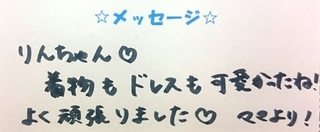 ☆メッセージ☆
りんちゃん♡
着物もドレスも可愛かったね!
よく頑張りました♡ ママより!